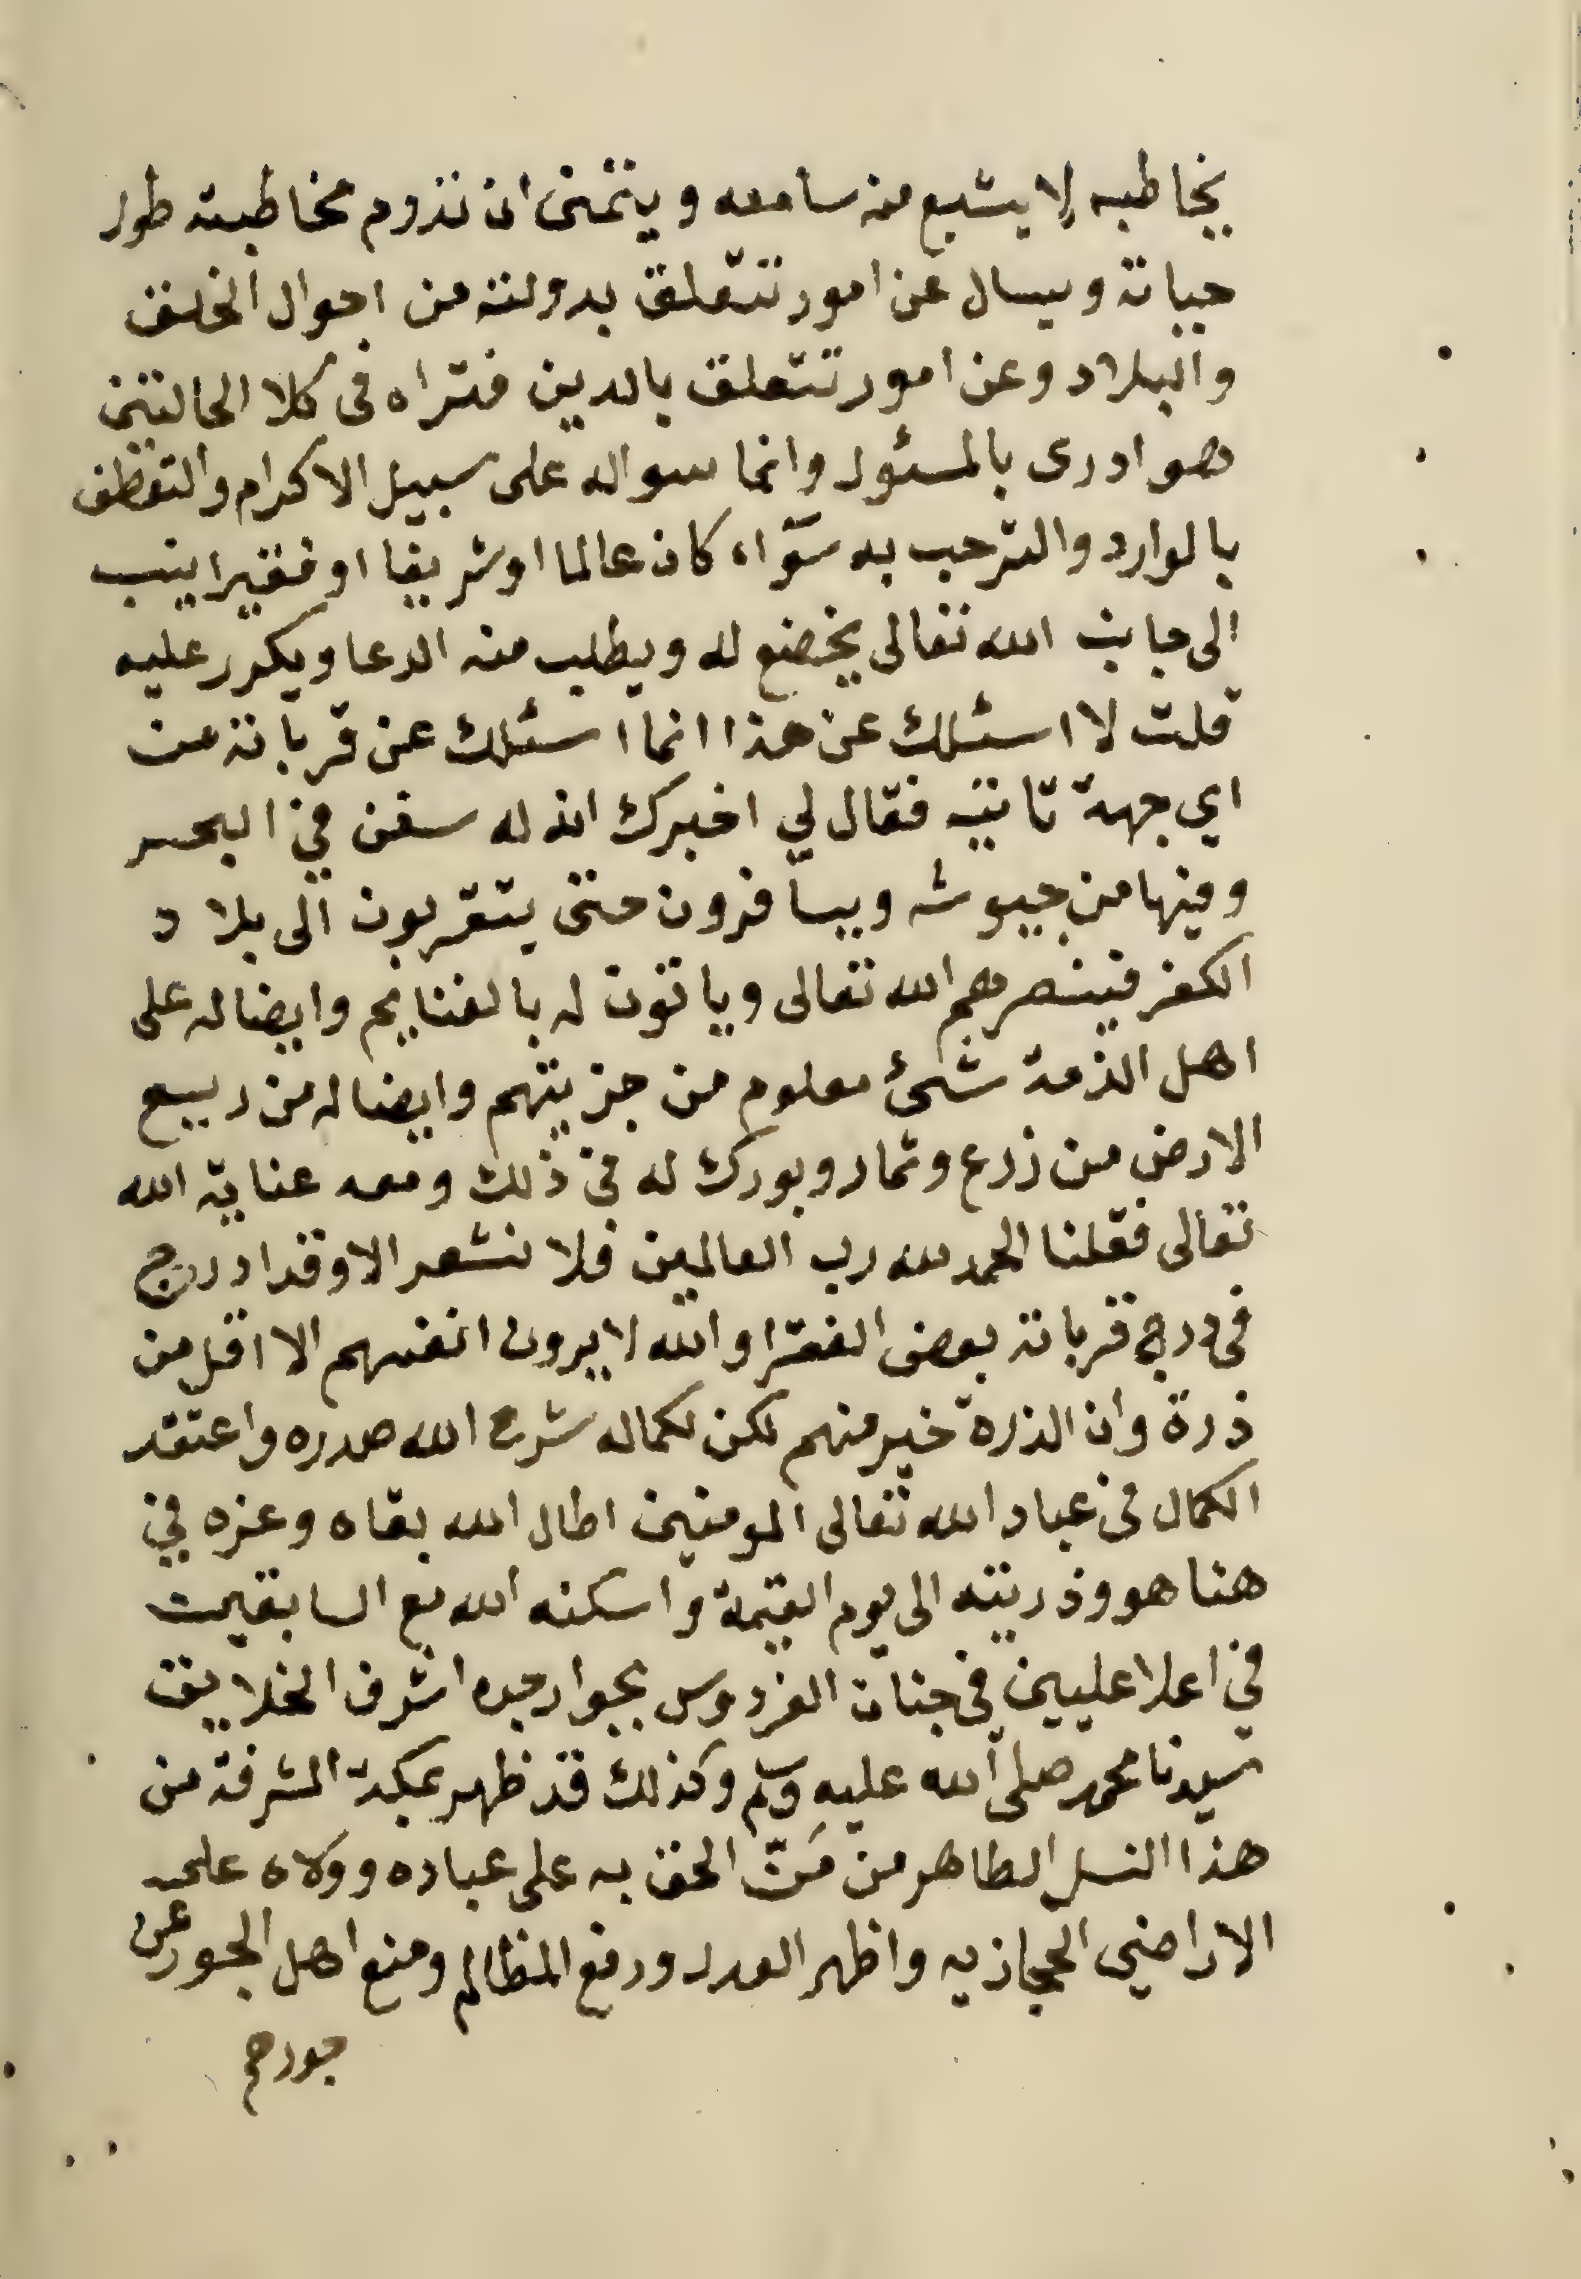 يخاطبه لا يشبع منه سامعه ويتمنى ان تدوم مخاطبته طول
حياته ويسال عن امور تتعلق بدولته من احوال الخلق
والبلاد وعن امور تتعلق بالدين فتراه في كلا الحالتين
هو ادرى بالمسئول وانما سواله على سبيل الاكرام والتعطف
بالوارد والترحب به سوآء كان عالما او شريفا او فقيرا ينسب
الى جانب الله تعالى يخضع له ويطلب منه الدعا ويكرر عليه
قلت لا اسئلك عن هذا انما اسئلك عن قرباته من
اي جهة تاتيه فقال لي اخبرك انه له سفن في البحر
وفيها من جيوشه ويسافرون حتى يتقربون الى بلاد
الكفر فينصرهم الله تعالى وياتون له بالغنايم وايضا له على
اهل الذمة شئ معلوم من جزيتهم وايضا له من ربيع
الارض من زرع وثمار وبورك له في ذلك ومعه عناية الله
تعالى فقلنا الحمد لله رب العالمين فلا نشعر الا وقد ادرج
في درج قرباته بعض الفقرا والله لا يرون انفسهم الا اقل من
ذرة وان الذرة خير منهم لكن لكماله شرح الله صدره واعتقد
الكمال في عباد الله تعالى المومنين اطال الله بقاه وعزه في
هنا هو وذريته الى يوم القيمة واسكنه الله مع السابقين
في اعلا عليين في جنات الفردوس بجوار جده اشرف الخلايق
سيدنا محمد صلى الله عليه وسلم وكذلك قد ظهر بمكة المشرفة من
هذا النسل الطاهر من مَنّ الحق به على عباده وولاه على
الاراضي الحجازيه واظهر العدل ورفع المظالم ومنع اهل الجور عن
جورهم